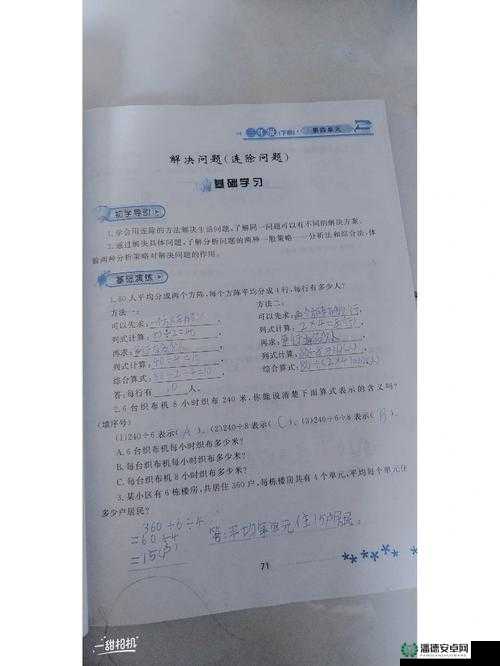 三年级(下册) · 第四单元
解决问题(连除问题)
基础学习
初学导引
1.学会用连除的方法解决生活问题,了解同一问题可以有不同的解决方案。
2.通过解决具体问题,了解分析问题的两种一般策略——分析法和综合法,体
验两种分析策略对解决问题的作用。
基础演练
1.80人平均分成两个方阵,每个方阵平均分成4行,每行有多少人?
方法一: 方法二:
可以先求: 可以先求:
列式计算: 列式计算:2×4=8(行)
再求: 再求:
列式计算:40÷4=10 列式计算:
综合算式:80÷2÷4=10 综合算式:
答:每行有 10 人。
2.6台织布机8小时织布240米,你能说清楚下面算式表示的含义吗?
(填序号)
(1)240÷6表示( A )、(2)240÷8表示( C )、(3)240÷6÷8表示( B )。
A.6台织布机每小时织布多少米?
B.每台织布机每小时织布多少米?
C.每台织布机8小时织布多少米?
3.某小区有6栋楼房,共居住360户,每栋楼房共有4个单元,平均每个单元住
多少户居民?
360÷6÷4
=60÷4
=15(户)
答:平均每单元住15户居民。
71
甜招机
潘德安卓网